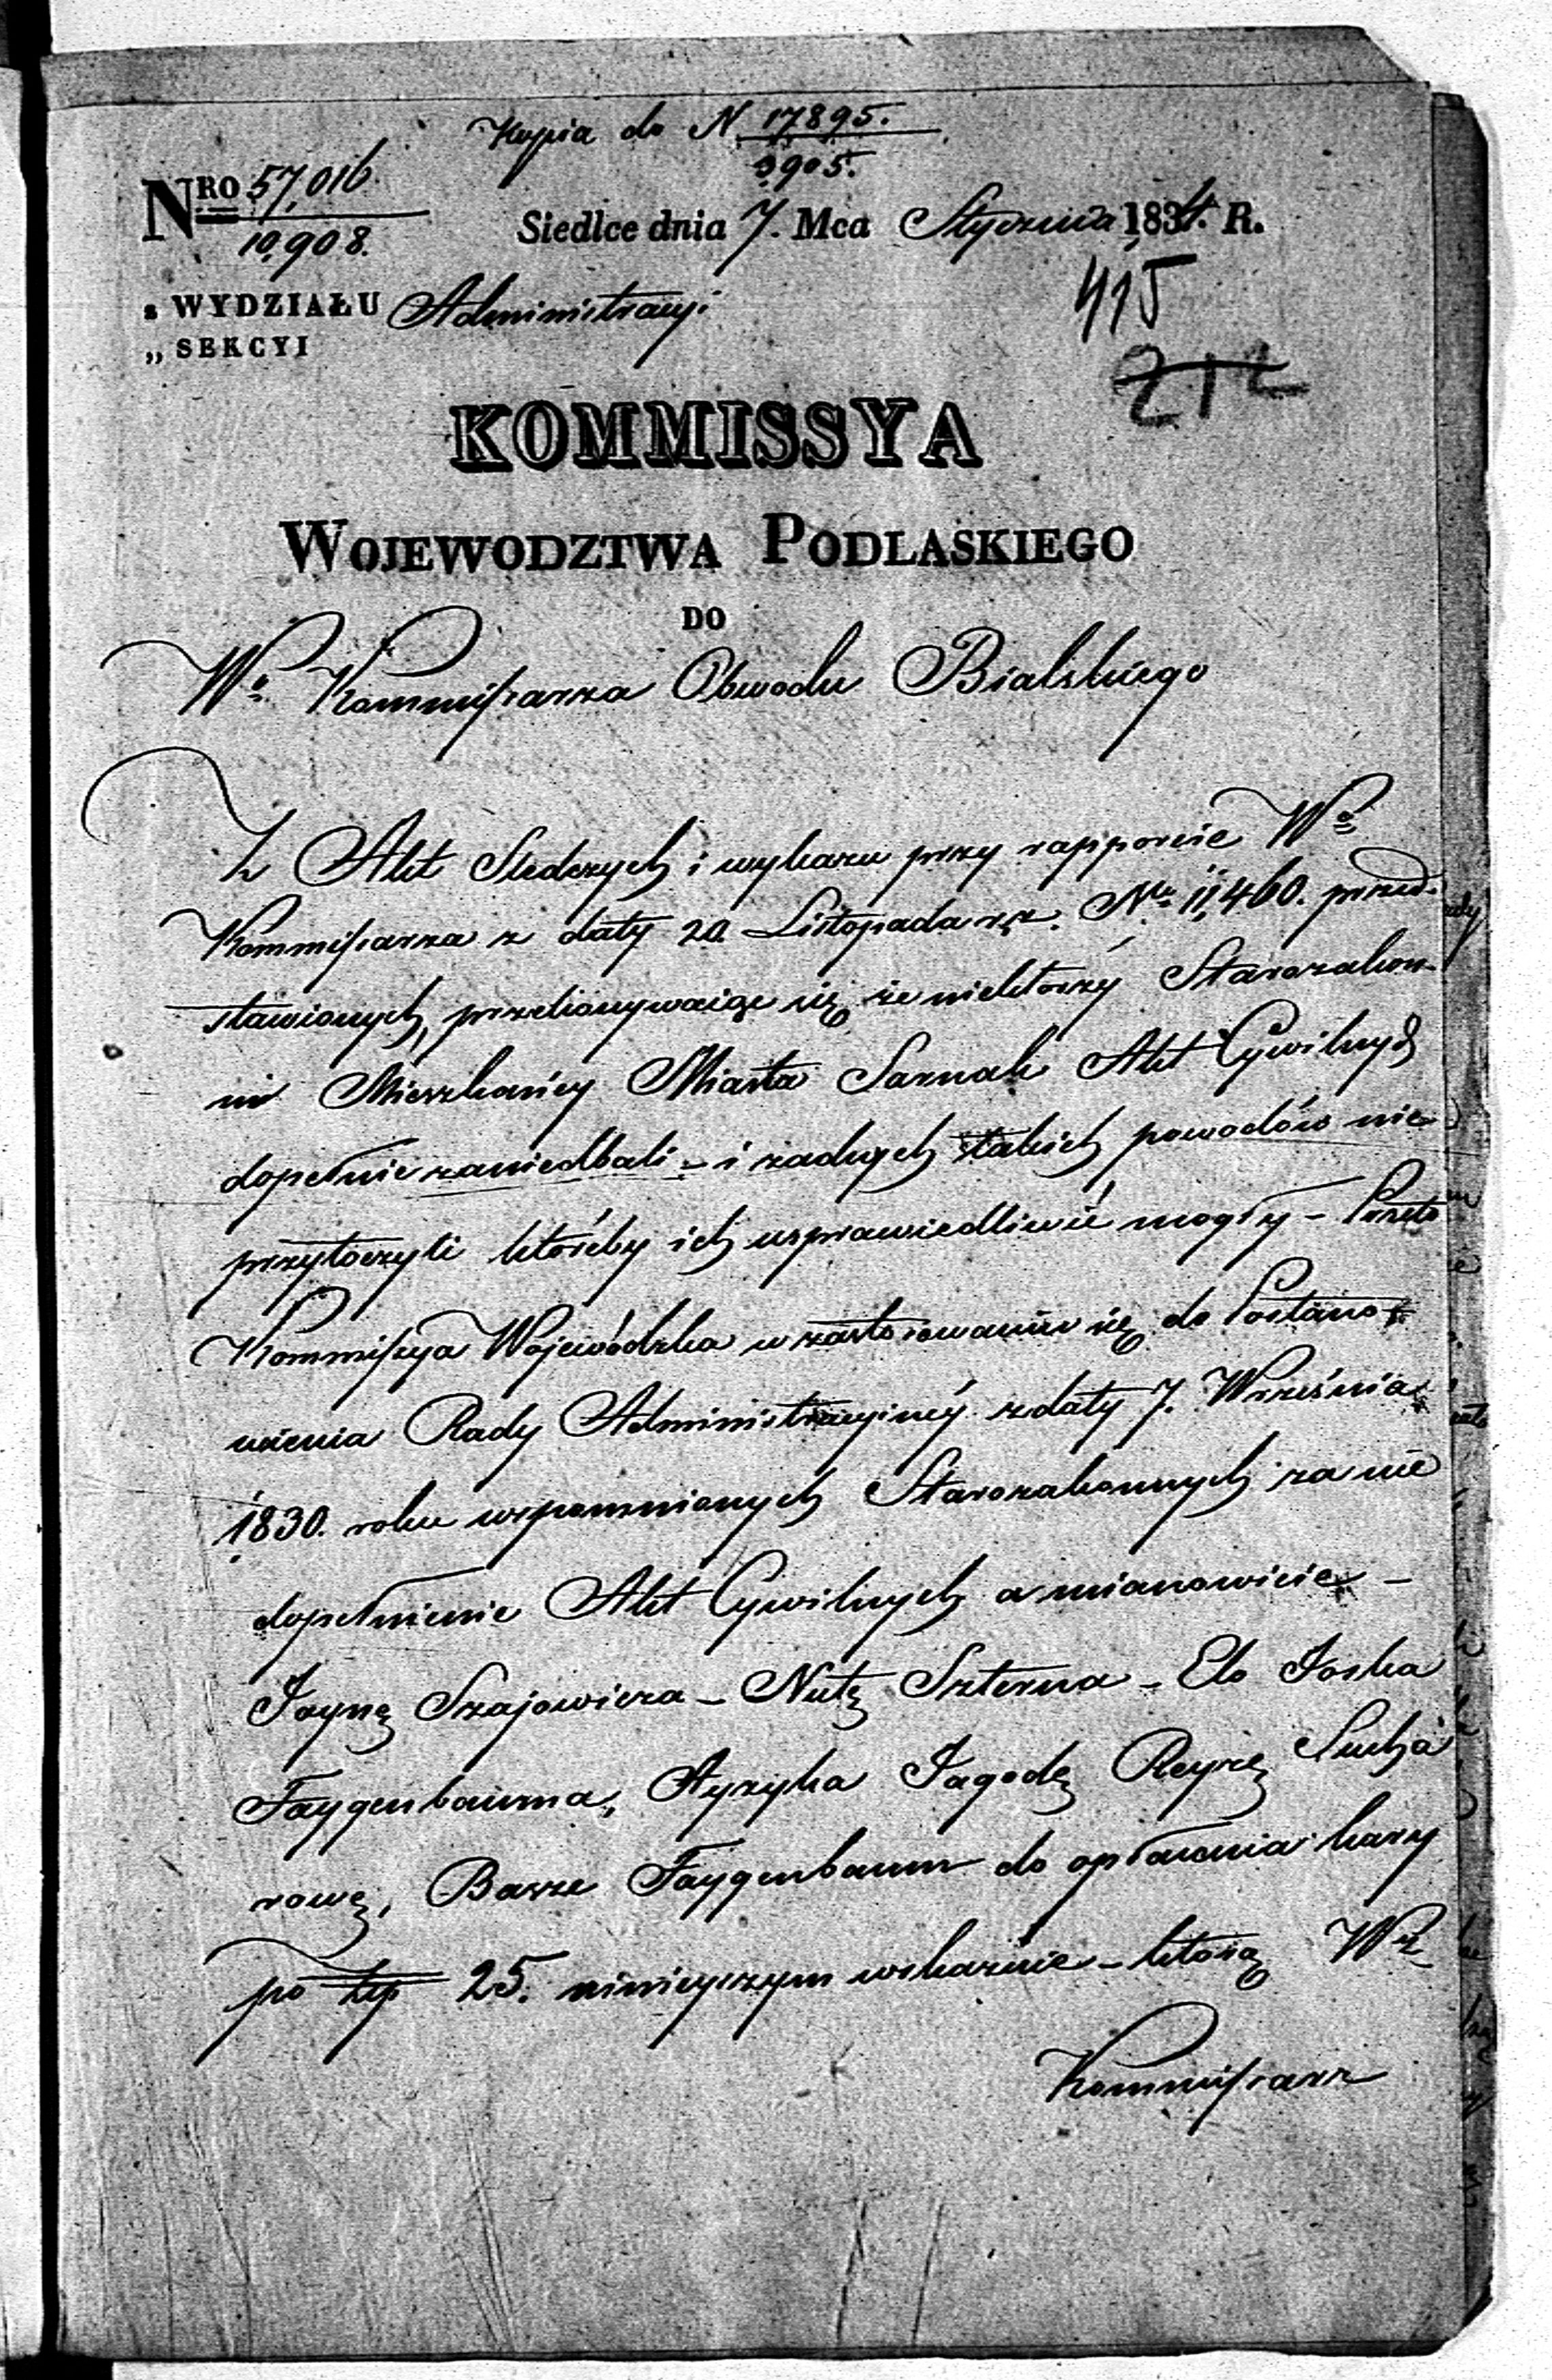 Kopia do N 17895.
3905.
NRO 57,016
10,908.
Siedlce dnia 7. Mca Stycznia 1834. R.
415
z WYDZIAŁU Administracyi
212
„ SEKCYI
KOMMISSYA
WOJEWODZTWA PODLASKIEGO
DO
Wo Kommissarza Obwodu Bialskiego
Z Akt Sledczych i wykazu przy rapporcie Wo
Kommissarza z daty 20. Listopada r. z. No 11,460. przed-
stawionych, przekonywaiąc się że niektórzy Starozakon-
ni Mieszkańcy Miasta Sarnak Akt Cywilnych
dopełnić zaniedbali – i zadnych takich powodów nie
przytoczyli któreby ich usprawiedliwić mogły – Przeto
Kommissya Wojewódzka w zastosowaniu się do Postano-
wienia Rady Administracyiney z daty 7. Września
1830. roku wspomnionych Starozakonnych za nie
dopełnienie Akt Cywilnych a mianowicie –
Joynę Szajowicza – Nutę Szterna – Elo Joska
Faygenbauma, Ayzyka Jagodę Reyzę Sucha
rowę, Baszę Faygenbaum do opłacenia kary
po złp 25. ninieyszym wskazuie – którą W
Kommissarz